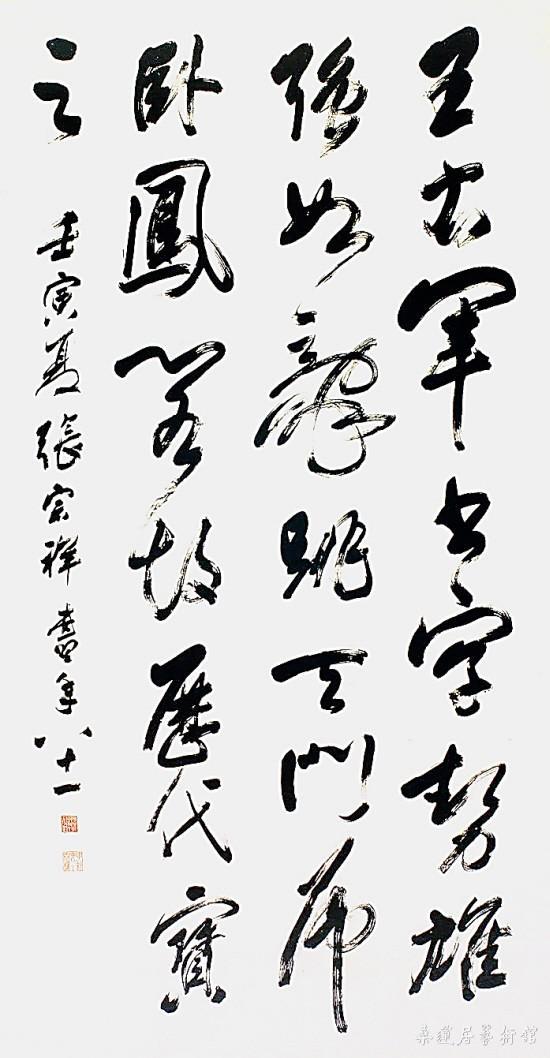 王右軍書字勢雄
強如龍跳天門虎
卧鳳閣故歷代寶
之
壬寅夏張宗祥書年八十一
桑蓮居藝術館